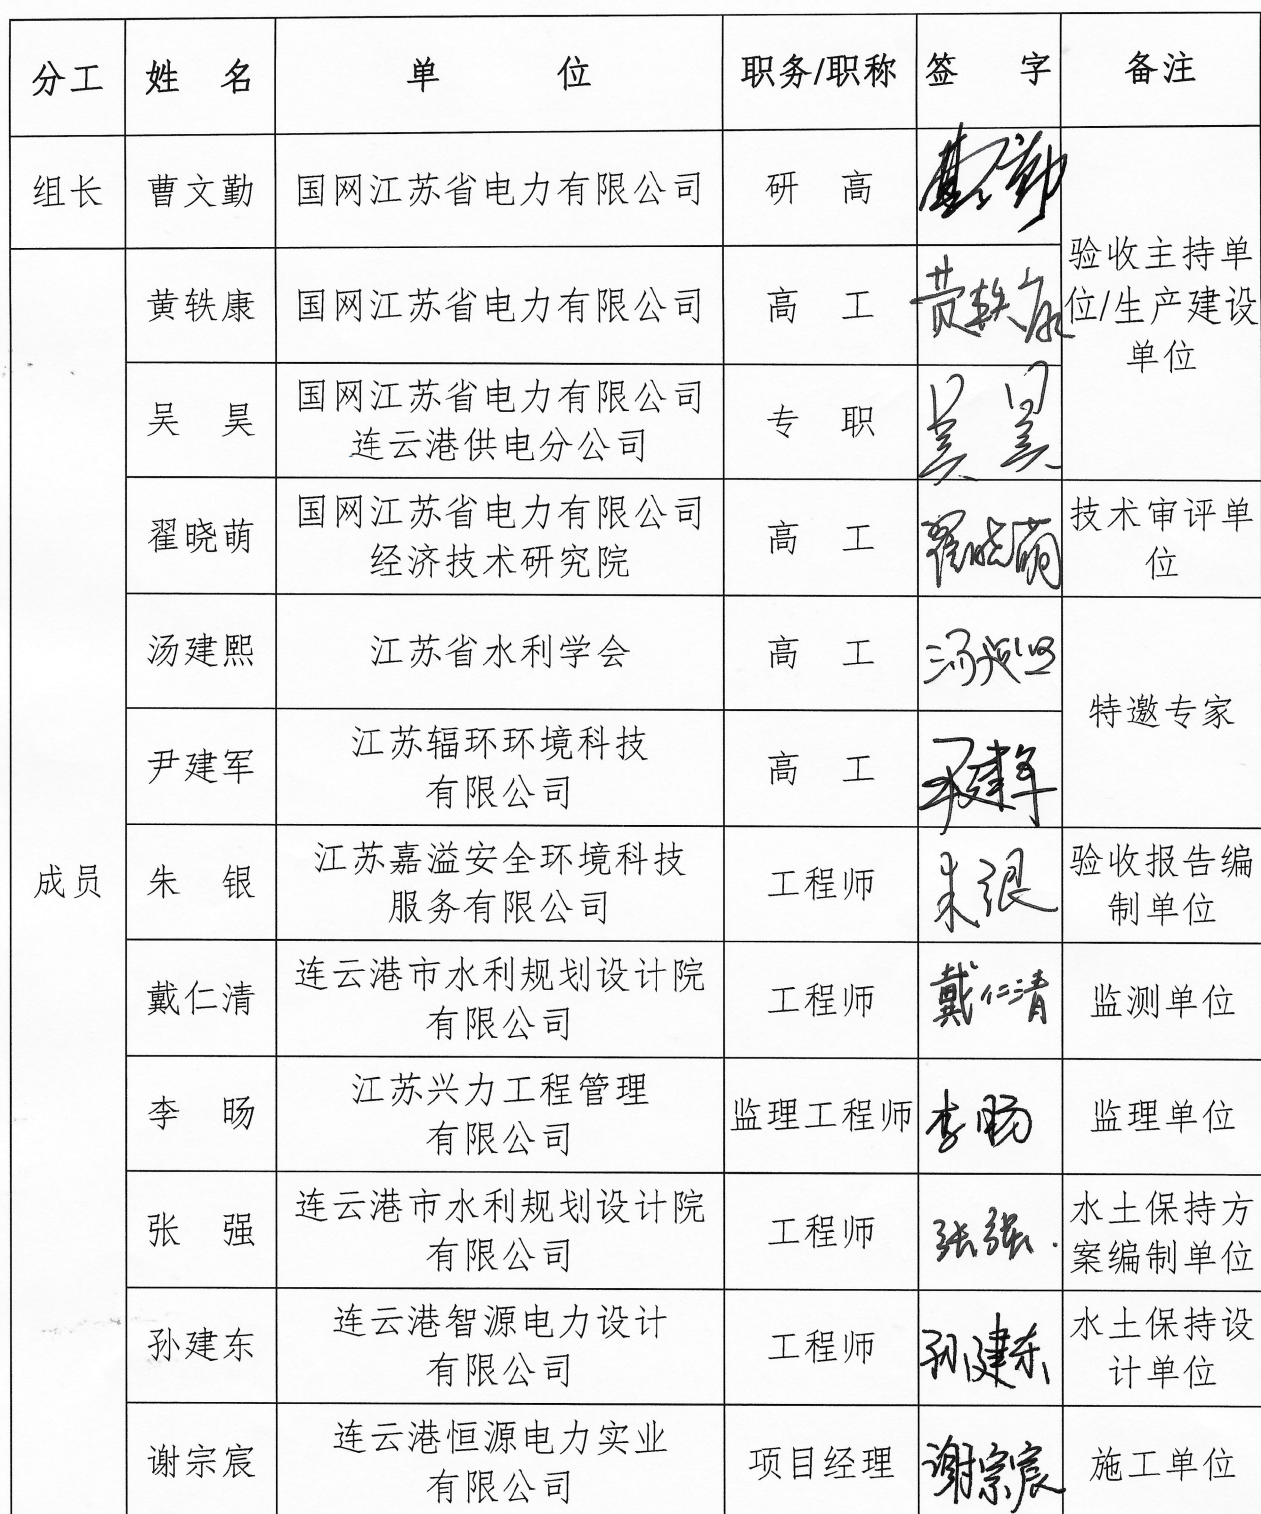 分工 姓 名 单 位 职务/职称 签 字 备注
组长 曹文勤 国网江苏省电力有限公司 研 高 曹文勤
验收主持单
位/生产建设
单位
成员
黄轶康 国网江苏省电力有限公司 高 工 黄轶康
吴 昊 国网江苏省电力有限公司
连云港供电分公司
专 职 吴昊
翟晓萌 国网江苏省电力有限公司
经济技术研究院
高 工 翟晓萌
技术审评单
位
汤建熙 江苏省水利学会 高 工 汤建熙
特邀专家
尹建军 江苏辐环环境科技
有限公司
高 工 尹建军
朱 银 江苏嘉溢安全环境科技
服务有限公司
工程师 朱银
验收报告编
制单位
戴仁清 连云港市水利规划设计院
有限公司
工程师 戴仁清 监测单位
李 旸 江苏兴力工程管理
有限公司
监理工程师 李旸 监理单位
张 强 连云港市水利规划设计院
有限公司
工程师 张强
水土保持方
案编制单位
孙建东 连云港智源电力设计
有限公司
工程师 孙建东
水土保持设
计单位
谢宗宸 连云港恒源电力实业
有限公司
项目经理 谢宗宸 施工单位